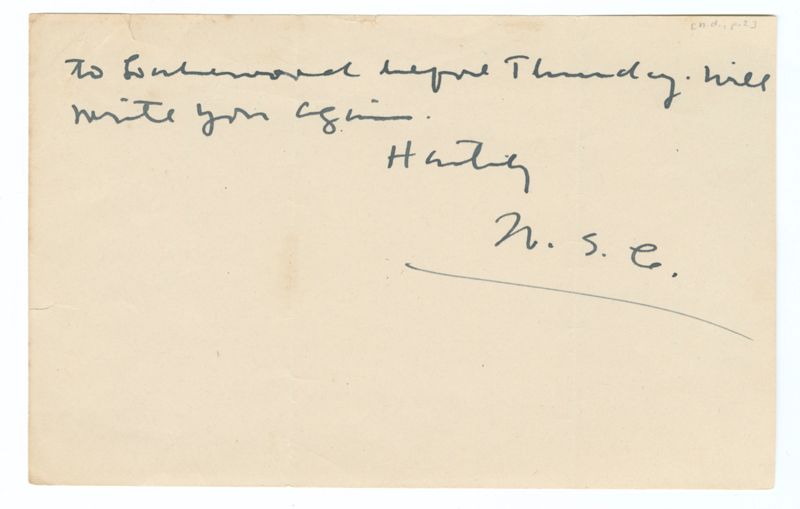 [n.d., p.2]
to before Thursday. Will
write you again.
Hastily
N. S. C.